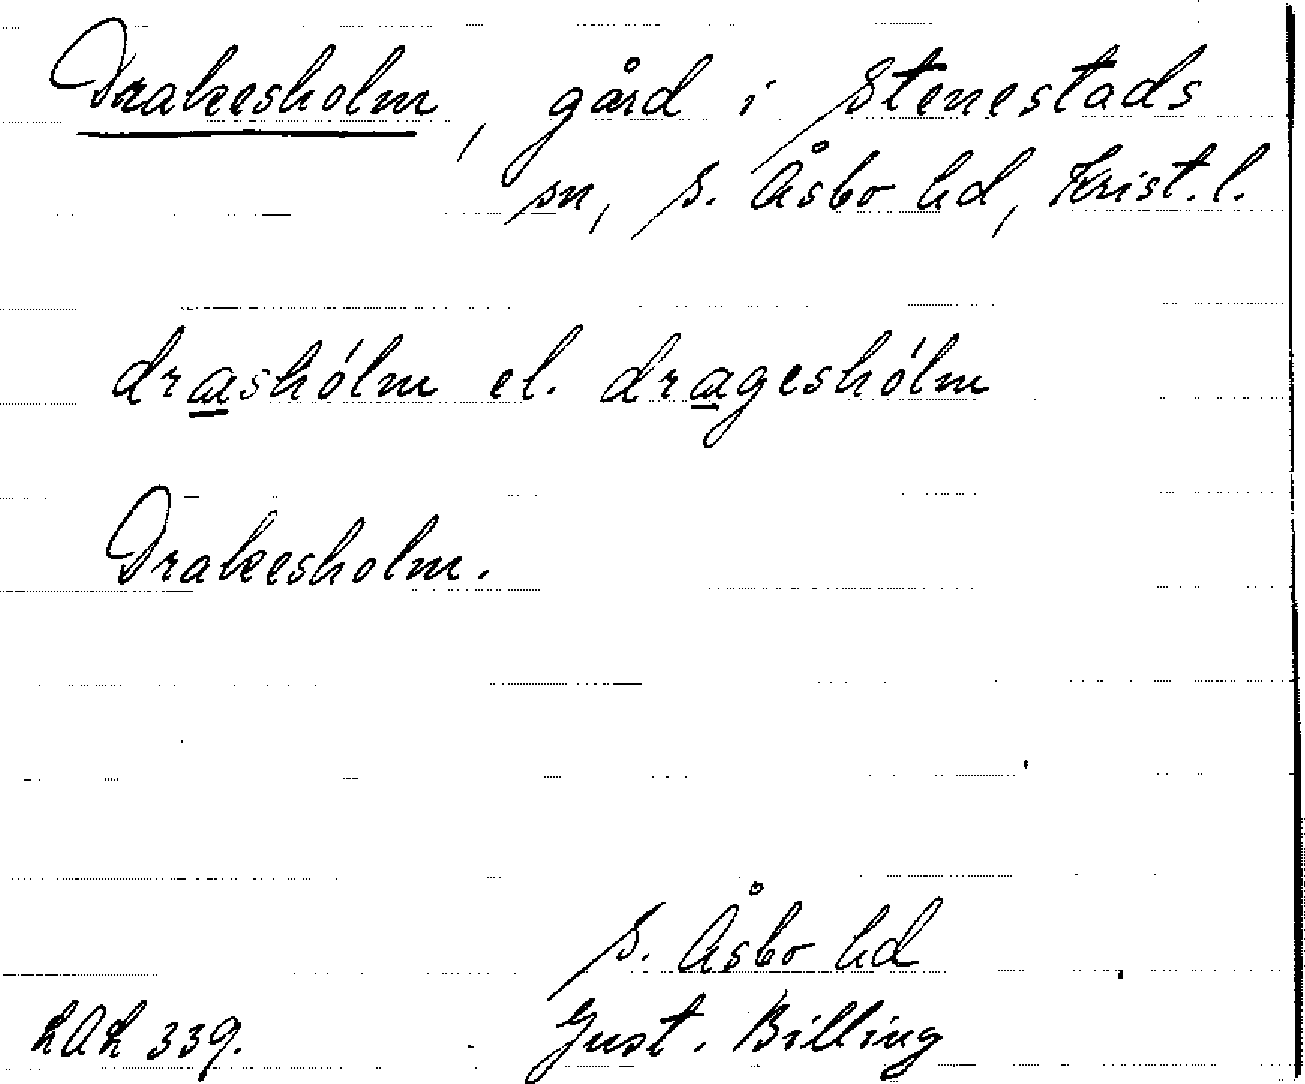 Drakesholm, gård i Stenestads
sn, S. Åsbo hd, Krist. l.
drashólm el. drageshólm
Drakesholm.
S. Åsbo hd
LAL 339. Gust. Billing